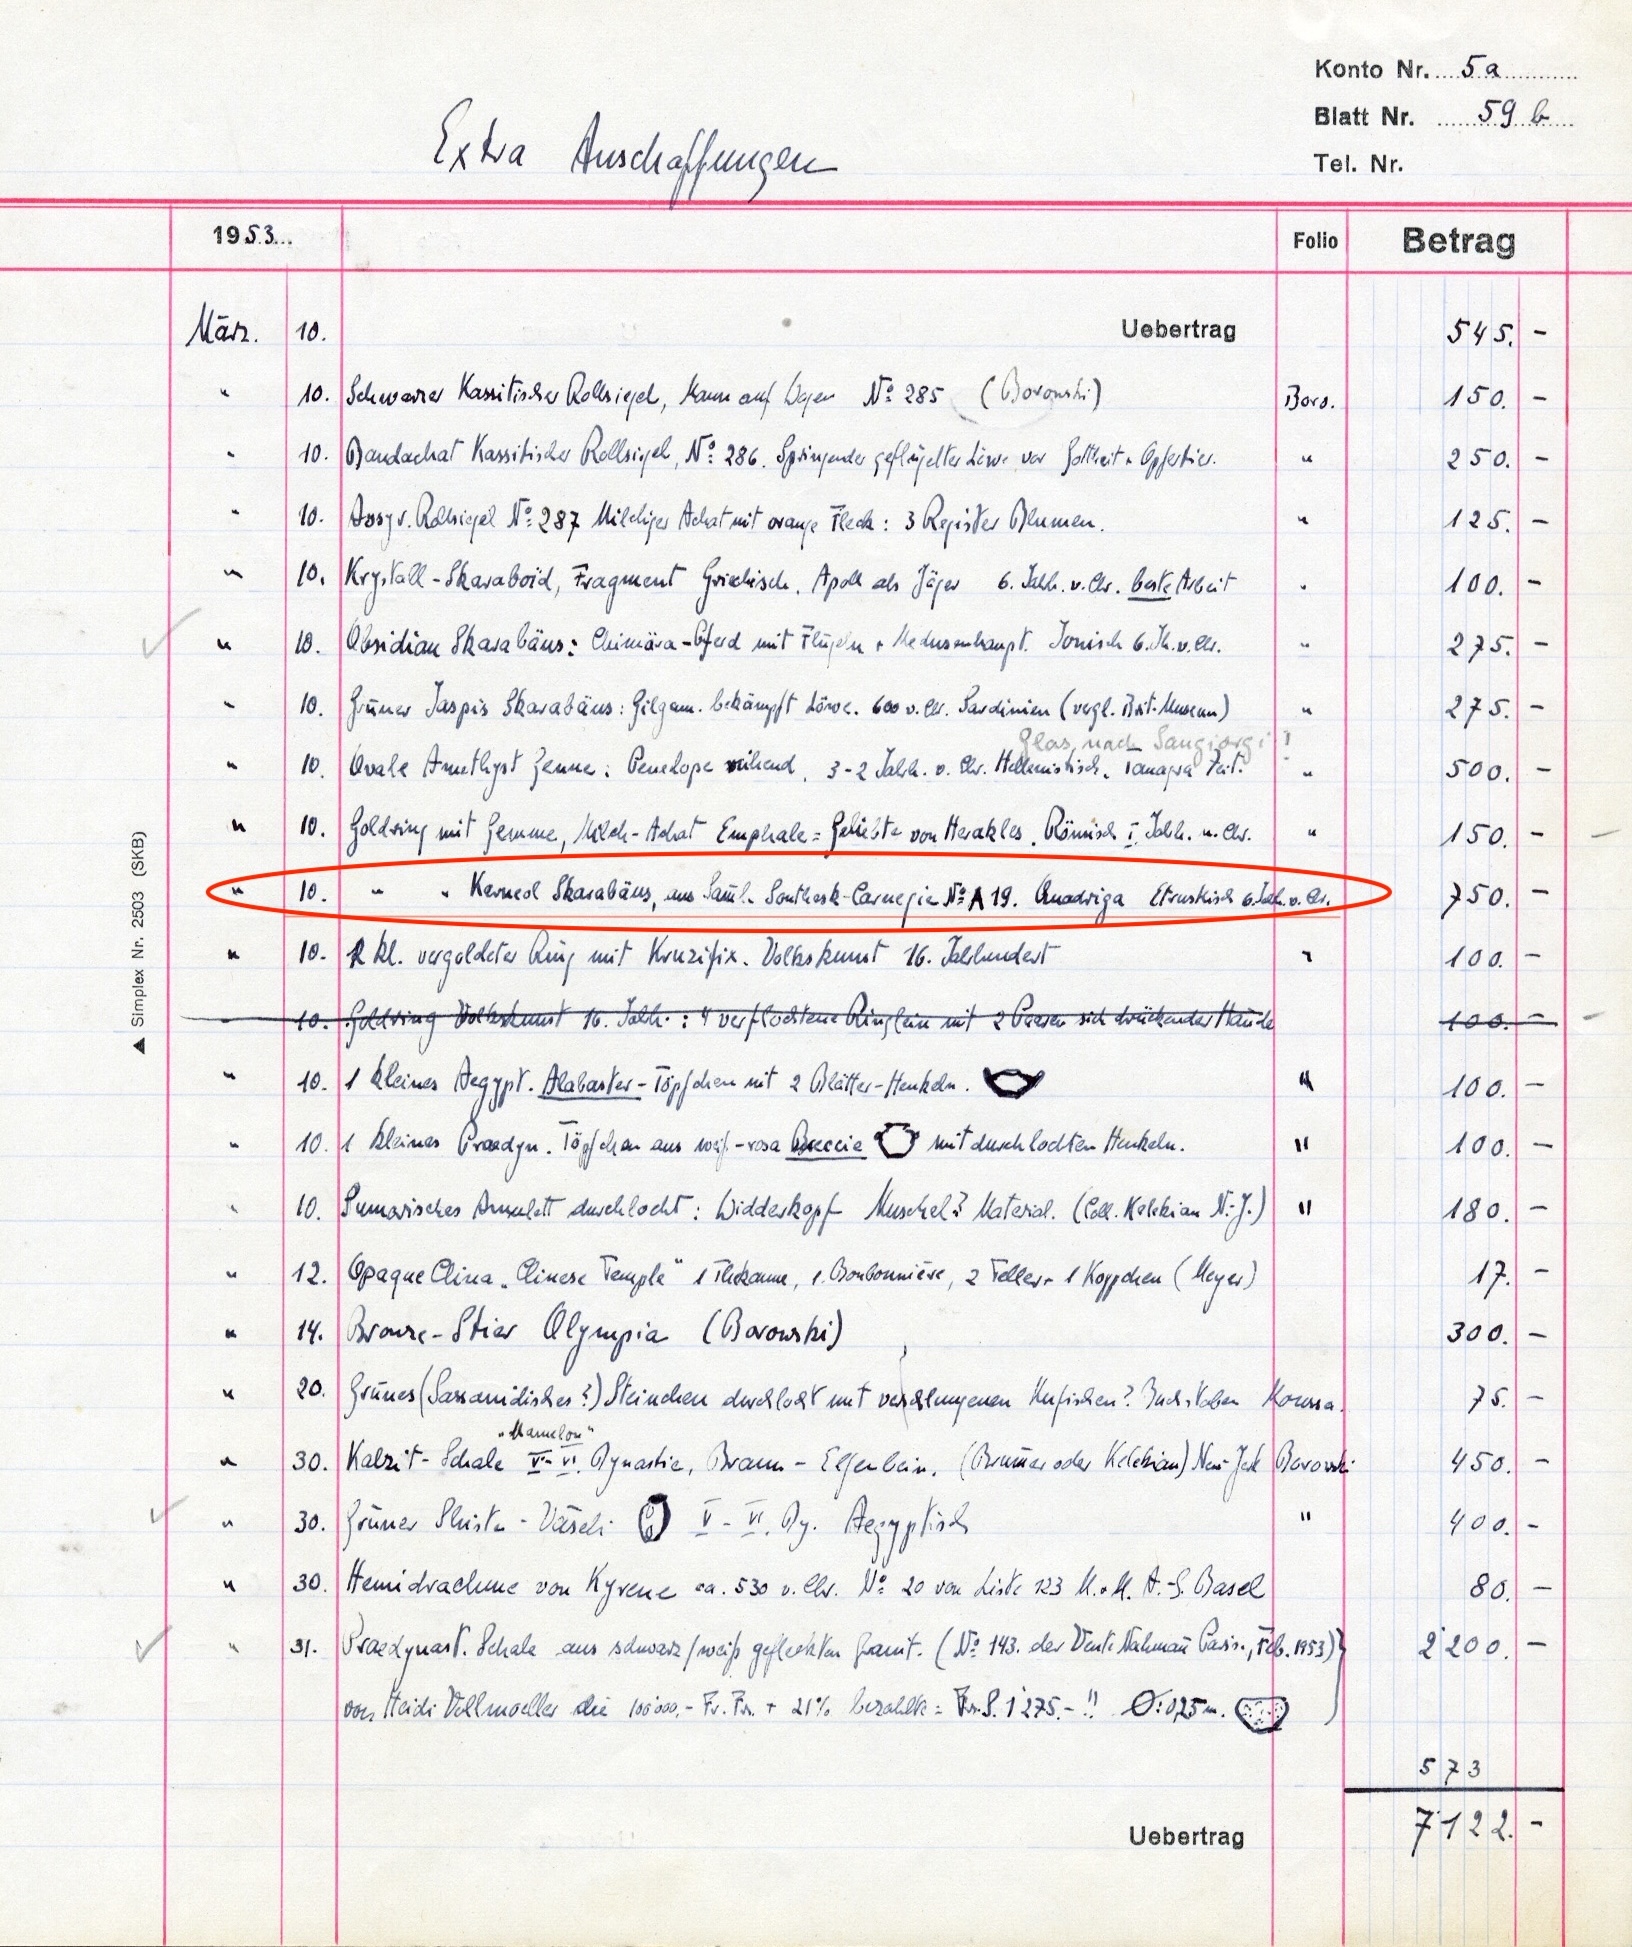 Konto Nr. 5a
Blatt Nr. 59 b
Tel. Nr.
Extra Anschaffungen
1953 Folio Betrag
März. 10. Uebertrag 545. –
" 10. Schwarzer Kassitischer Rollsiegel, Mann auf Wagen No 285 (Borowski) Boro. 150. –
" 10. Bandachat Kassitischer Rollsiegel, No 286. Springender geflügelter Löwe vor Gottheit + Opfertier. " 250. –
" 10. Assyr. Rollsiegel No 287 Milchiger Achat mit orange Fleck: 3 Register Blumen. " 125. –
" 10. Krystall-Skaraboïd, Fragment Griechisch. Apoll als Jäger 6. Jahh. v. Chr. beste Arbeit " 100. –
" 10. Obsidian Skarabäus: Chimära-Pferd mit Flügeln + Medusenhaupt. Jonisch 6. Jh. v. Chr. " 275. –
" 10. Grüner Jaspis Skarabäus: Gilgam. bekämpft Löwe. 600 v. Chr. Sardinien (vergl. Brit. Museum) " 275. –
Glas, nach Sangiorgi!
" 10. Ovale Amethyst Gemme: Penelope ruhend, 3-2 Jahh. v. Chr. Hellenistisch. Tanagra Zeit. " 500. –
" 10. Goldring mit Gemme, Milch-Achat Emphale = Geliebte von Herakles. Römisch I. Jahh. n. Chr. " 150. –
" 10. " " Karneol Skarabäus, aus Saml. Southesk-Carnegie No A 19. Quadriga Etruskisch 6. Jahh. v. Chr. 750. –
" 10. 1 kl. vergoldeter Ring mit Kruzifix. Volkskunst 16. Jahrhundert " 100. –
" 10. Goldring Volkskunst 16. Jahh.: 4 verflochtene Ringlein mit 2 Paaren sich drückender Hände 100. –
" 10. 1 kleines Aegypt. Alabaster-Töpfchen mit 2 Blätter-Henkeln. " 100. –
" 10. 1 kleines Praedyn. Töpfchen aus weiß-rosa Breccie mit durchlochten Henkeln. " 100. –
" 10. Sumerisches Amulett durchlocht: Widderkopf Muschel? Material. (Coll. Kelekian N.-J.) " 180. –
" 12. Opaque China „Chinese Temple" 1 Theekanne, 1 Bonbonnière, 2 Teller + 1 Koppchen (Meyer) 17. –
" 14. Bronze-Stier Olympia (Borowski) 300. –
" 20. Grünes (Sassanidisches?) Steinchen durchlocht mit verschlungenen Kufischen? Buchstaben Koussa. 75. –
„Mamelon"
" 30. Kalzit-Schale V-VI. Dynastie, Braun-Elfenbein, (Brummer oder Kelekian) New-York Borowski 450. –
" 30. Grüner Shiste-Väseli V-VI. Dy. Aegyptisch " 400. –
" 30. Hemidrachme von Kyrene ca. 530 v. Chr. No 20 von Liste 123 M. + M. A.-G. Basel 80. –
" 31. Praedynast. Schale aus schwarz/weiß geflecktem Granit. (No 143. der Vente Nahman Paris., Feb. 1953) 2'200. –
von Heidi Vollmoeller die 100'000.- Fr. Fr. + 21% bezahlte = Fr. S. 1'275.- !! Ø: 0,25 m.
573
Uebertrag 7'122. –
▲ Simplex Nr. 2503 (SKB)